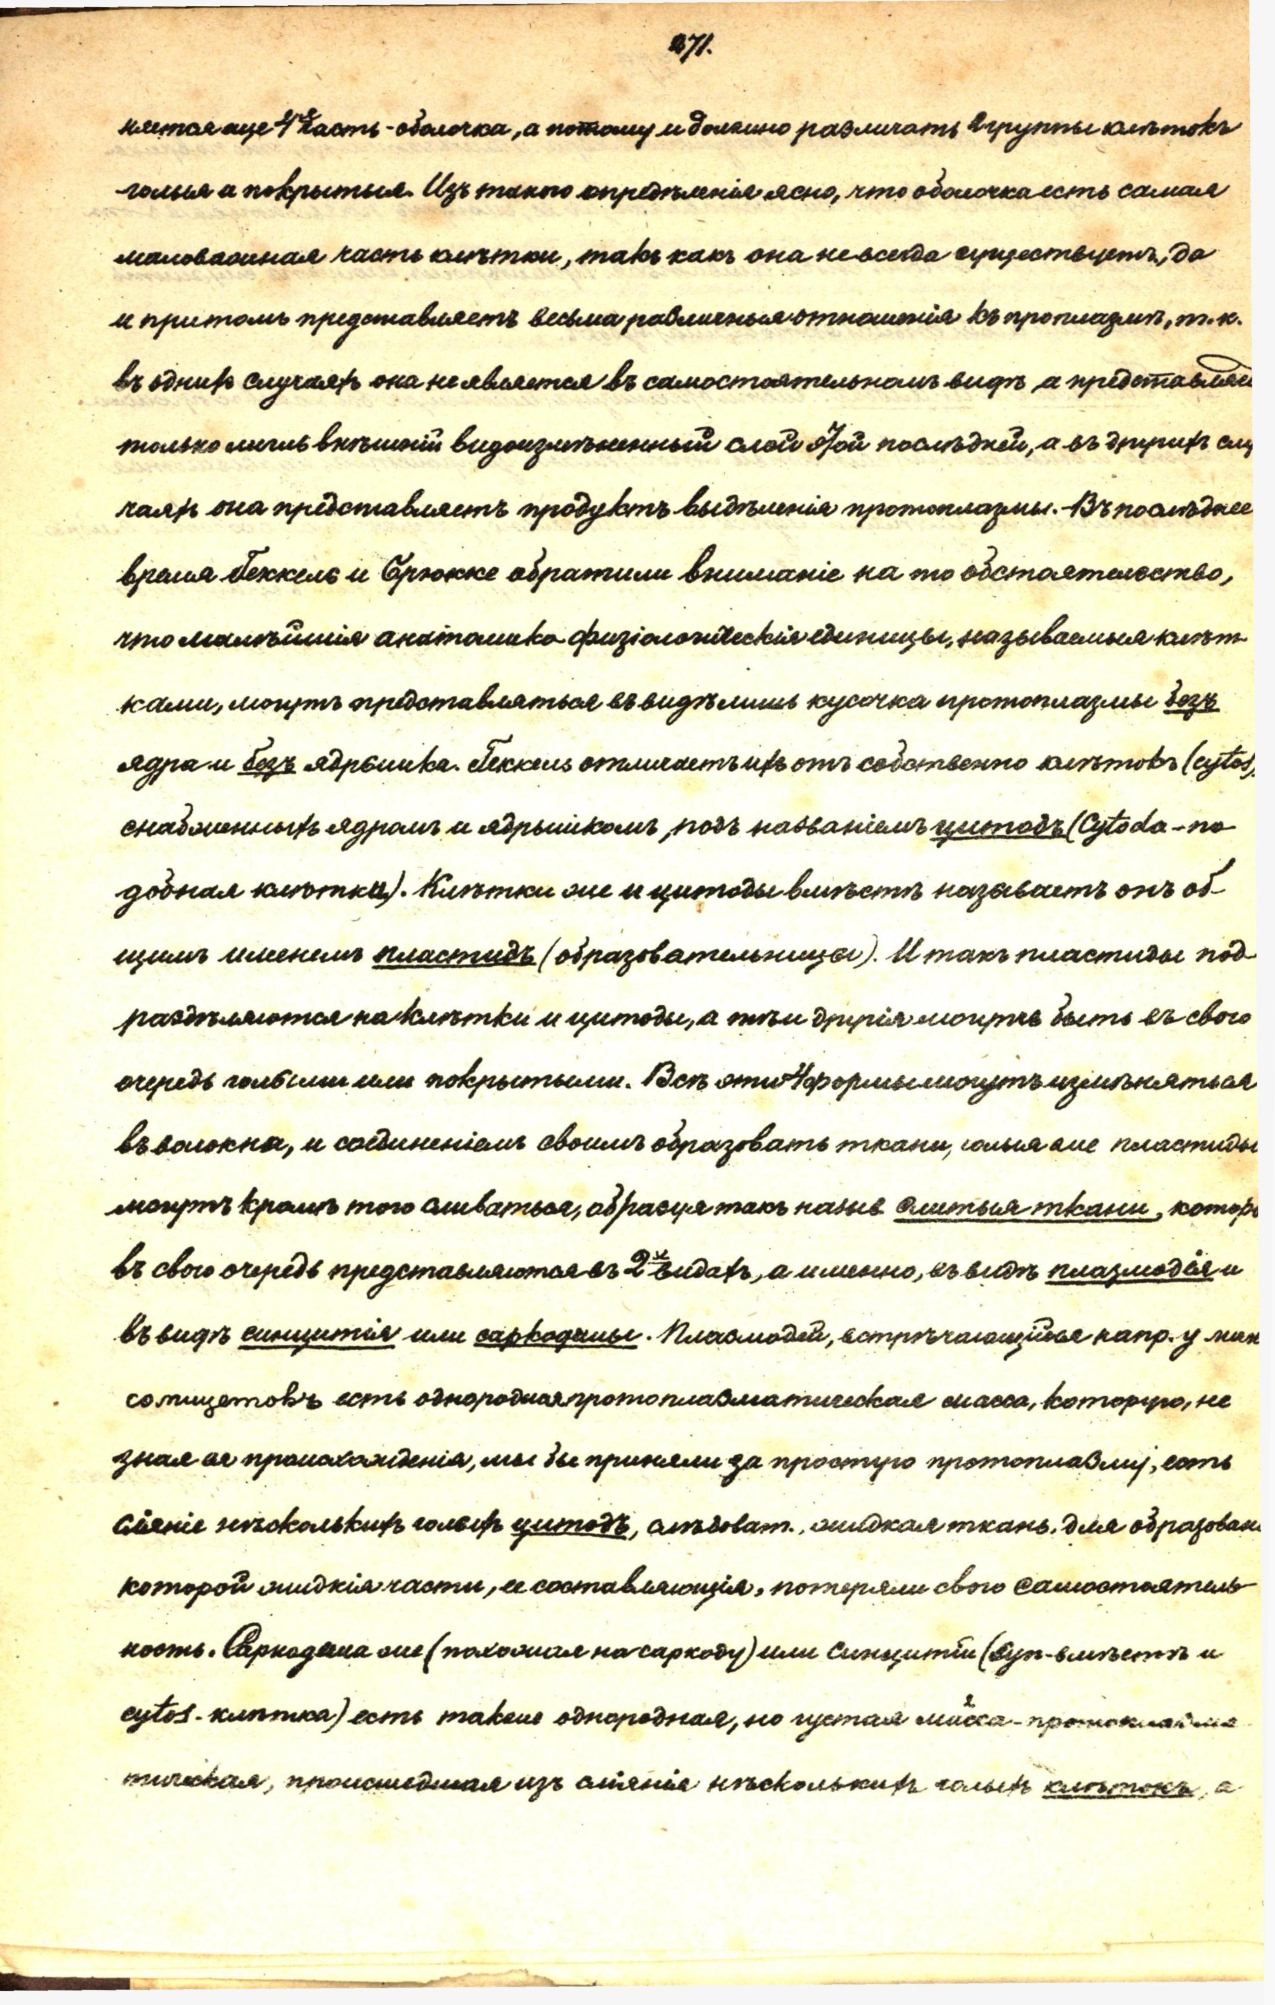 271.
няется еще 4я часть - оболочка, а потому и должно различать 2 группы клѣтокъ
голыя и покрытыя. Изъ такого опредѣленія ясно, что оболочка есть самая
маловажная часть клѣтки, такъ какъ она не всегда существуетъ, да
и притомъ представляетъ весьма различныя отношенія къ проплазмѣ, т. к.
въ однихъ случаяхъ она не является въ самостоятельномъ видѣ, а представляе
только лишь внѣшній видоизмѣненный слой этой послѣдней, а въ другихъ слу
чаяхъ она представляетъ продуктъ выдѣленія протоплазмы. Въ послѣднее
время Геккель и Брюкке обратили вниманіе на то обстоятельство,
что малѣйшія анатомико-физіологическія единицы, называемыя клѣт-
ками, могутъ представляться въ видѣ лишь кусочка протоплазмы безъ
ядра и безъ ядрышка. Геккель отличаетъ ихъ отъ собственно клѣтокъ (cytos),
снабженныхъ ядромъ и ядрышкомъ, подъ названіемъ цитодъ (Cytoda - по-
добная клѣткѣ). Клѣтки же и цитоды вмѣстѣ называетъ онъ об-
щимъ именемъ пластидъ (образовательницы). И такъ пластиды под-
раздѣляются на клѣтки и цитоды, а тѣ и другія могутъ быть въ свою
очередь голыми или покрытыми. Всѣ эти 4 формы могутъ измѣняться
въ волокна, и соединеніемъ своимъ образовать ткани, голыя же пластиды
могутъ кромѣ того сливаться, образуя такъ назыв слитыя ткани, котор
въ свою очередь представляются въ 2х видахъ, а именно, въ видѣ плазмодія и
въ видѣ синцитія или саркодемы. Плазмодій, встрѣчающійся напр. у мик
сомицетовъ есть однородная протоплазматическая масса, которую, не
зная ея происхожденія, мы бы приняли за простую протоплазму, есть
сліяніе нѣсколькихъ голыхъ цитодъ, слѣдоват. жидкая ткань, для образован
которой жидкія части, ее составляющія, потеряли свою самостоятель-
ность. Саркодема же (похожая на саркоду) или синцитій (syn-вмѣстѣ и
cytos - клѣтка) есть также однородная, но густая масса - протоплазма
тическая, происшедшая изъ сліянія нѣсколькихъ голыхъ клѣтокъ, а